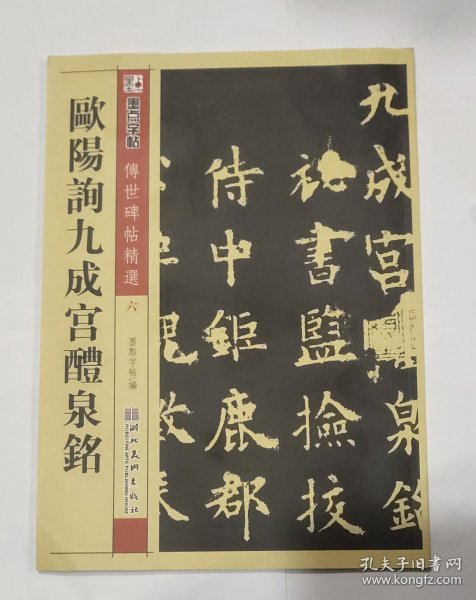 歐陽詢九成宫醴泉銘
墨点字帖
傳世碑帖精選
六
墨點字帖編
湖北美術出版社
HUBEI FINE ARTS PUBLISHING HOUSE
九成宫醴泉銘
秘書監撿挍
侍中鉅鹿郡
孔夫子旧书网
www.kongfz.com